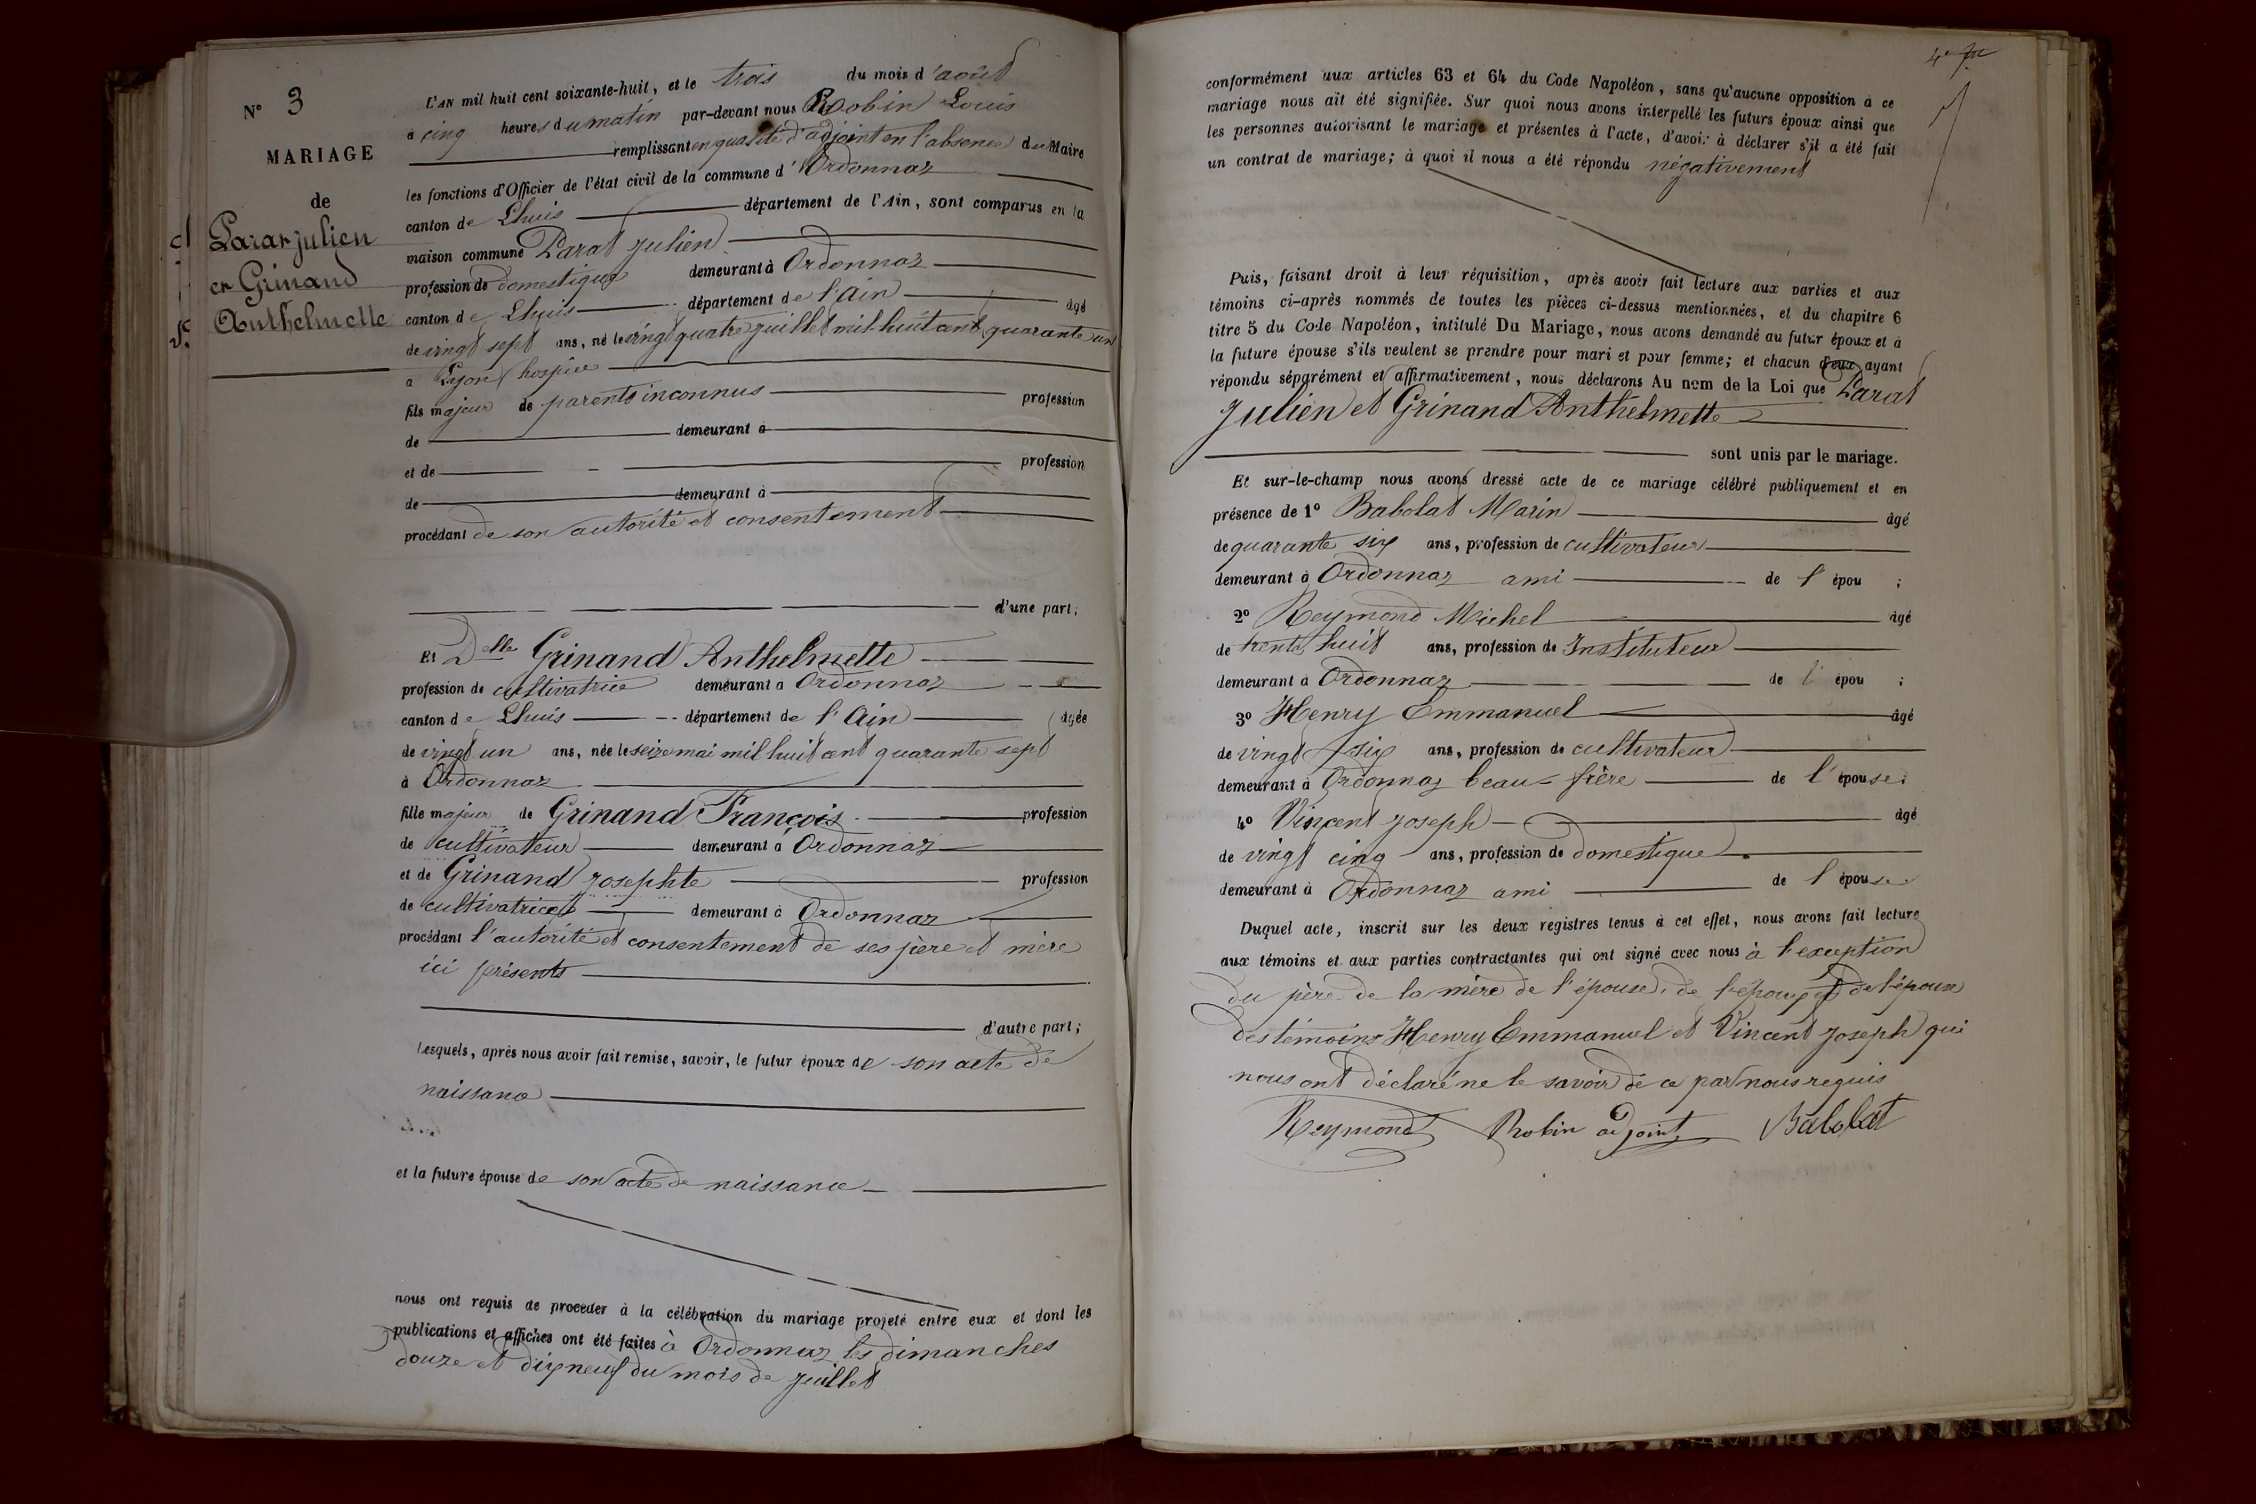 N° 3
MARIAGE
de
Parat Julien
et Grinand
Anthelmette
L'AN mil huit cent soixante-huit, et le trois du mois d'août
à cinq heures du matin par-devant nous Robin Louis
remplissant en qualité d'adjoint en l'absence du Maire
les fonctions d'Officier de l'état civil de la commune d'Ordonnaz
canton de Lhuis département de l'Ain, sont comparus en la
maison commune Parat Julien
profession de domestique demeurant à Ordonnaz
canton de Lhuis département de l'Ain âgé
de vingt sept ans, né le vingt quatre juillet mil huit cent quarante un
à Lyon hospice
fils majeur de parents inconnus profession
de demeurant à
et de profession
de demeurant à
procédant de son autorité et consentement
d'une part;
Et Delle Grinand Anthelmette
profession de cultivatrice demeurant à Ordonnaz
canton de Lhuis département de l'Ain âgée
de vingt un ans, née le seize mai mil huit cent quarante sept
à Ordonnaz
fille majeur de Grinand François profession
de cultivateur demeurant à Ordonnaz
et de Grinand Josephte profession
de cultivatrice demeurant à Ordonnaz
procédant l'autorité et consentement de ses père et mère
ici présents
d'autre part;
Lesquels, après nous avoir fait remise, savoir, le futur époux de son acte de
naissance
et la future épouse de son acte de naissance
nous ont requis de procéder à la célébration du mariage projeté entre eux et dont les
publications et affiches ont été faites à Ordonnaz les dimanches
douze et dix neuf du mois de juillet
conformément aux articles 63 et 64 du Code Napoléon, sans qu'aucune opposition à ce
mariage nous ait été signifiée. Sur quoi nous avons interpellé les futurs époux ainsi que
les personnes autorisant le mariage et présentes à l'acte, d'avoir à déclarer s'il a été fait
un contrat de mariage; à quoi il nous a été répondu négativement
Puis, faisant droit à leur réquisition, après avoir fait lecture aux parties et aux
témoins ci-après nommés de toutes les pièces ci-dessus mentionnées, et du chapitre 6
titre 5 du Code Napoléon, intitulé Du Mariage, nous avons demandé au futur époux et à
la future épouse s'ils veulent se prendre pour mari et pour femme; et chacun d'eux ayant
répondu séparément et affirmativement, nous déclarons Au nom de la Loi que Parat
Julien et Grinand Anthelmette
sont unis par le mariage.
Et sur-le-champ nous avons dressé acte de ce mariage célébré publiquement et en
présence de 1° Babolat Marin âgé
de quarante six ans, profession de cultivateur
demeurant à Ordonnaz ami de l'épou ;
2° Reymond Michel âgé
de trente huit ans, profession de Instituteur
demeurant à Ordonnaz de l'épou ;
3° Henry Emmanuel âgé
de vingt six ans, profession de cultivateur
demeurant à Ordonnaz beau-frère de l'épouse;
4° Vincent Joseph âgé
de vingt cinq ans, profession de domestique
demeurant à Ordonnaz ami de l'épouse
Duquel acte, inscrit sur les deux registres tenus à cet effet, nous avons fait lecture
aux témoins et aux parties contractantes qui ont signé avec nous à l'exception
du père de la mère de l'épouse, de l'épouse et de l'époux
des témoins Henry Emmanuel et Vincent Joseph qui
nous ont déclaré ne le savoir de ce par nous requis
Reymond Robin adjoint Babolat